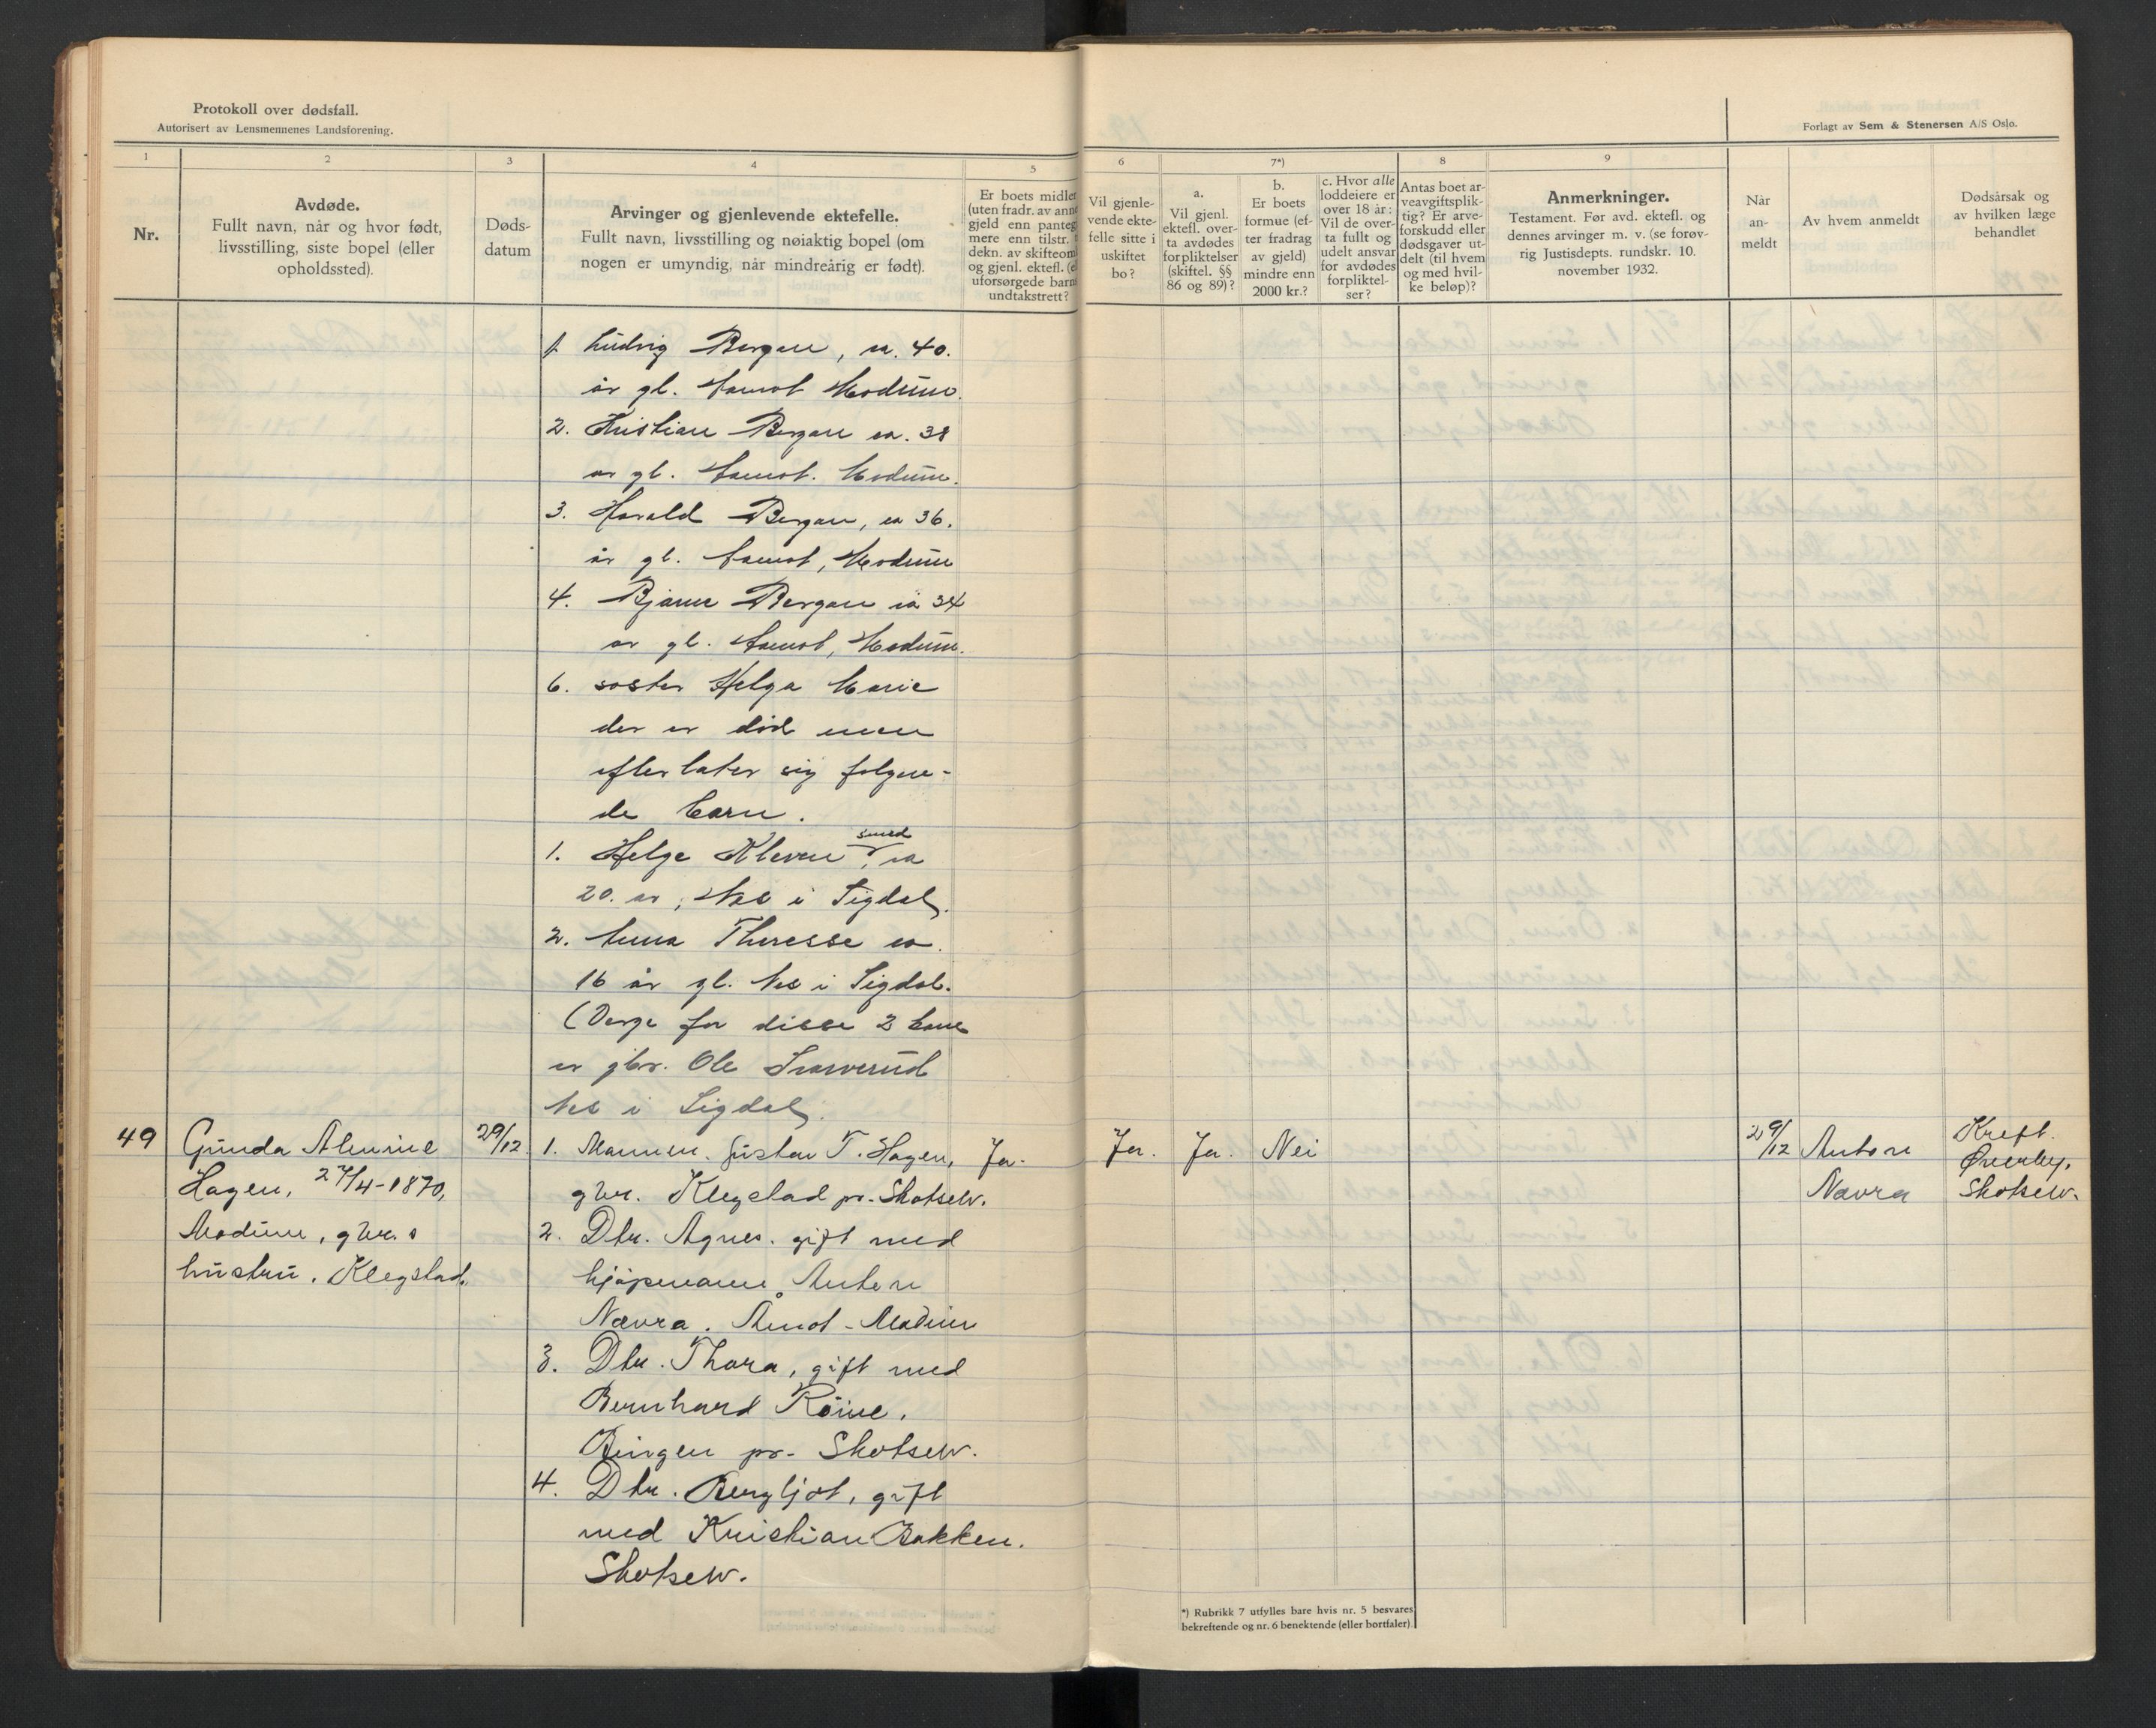 Protokoll over dødsfall.
Autorisert av Lensmennenes Landsforening.
Forlagt av Sem & Stenersen A/S Oslo.
1
2
3
4
5
6
7*)
8
9
Nr.
Avdøde.
Fullt navn, når og hvor født,
livsstilling, siste bopel (eller
opholdssted).
Døds-
datum
Arvinger og gjenlevende ektefelle.
Fullt navn, livsstilling og nøiaktig bopel (om
nogen er umyndig, når mindreårig er født).
Er boets midler
(uten fradr. av anne
gjeld enn panteg
mere enn tilstr.
dekn. av skifteom
og gjenl. ektefl. (e
uforsørgede barn
undtakstrett?
Vil gjenle-
vende ekte-
felle sitte i
uskiftet
bo?
a.
Vil gjenl.
ektefl. over-
ta avdødes
forpliktelser
(skiftel. §§
86 og 89)?
b.
Er boets
formue (ef-
ter fradrag
av gjeld)
mindre enn
2000 kr.?
c. Hvor alle
loddeiere er
over 18 år:
Vil de over-
ta fullt og
udelt ansvar
for avdødes
forpliktel-
ser?
Antas boet ar-
veavgiftsplik-
tig? Er arve-
forskudd eller
dødsgaver ut-
delt (til hvem
og med hvil-
ke beløp)?
Anmerkninger.
Testament. Før avd. ektefl. og
dennes arvinger m. v. (se forøv-
rig Justisdepts. rundskr. 10.
november 1932.
Når
an-
meldt
Av hvem anmeldt
Dødsårsak og
av hvilken læge
behandlet
1 Ludvig Bergan, ca. 40.
år gl. Åmot Modum.
2. Kristian Bergan ca. 38
år gl. Åmot. Modum.
3. Harald Bergan, ca 36.
år gl. Åmot, Modum
4. Bjarne Bergan ca 34
år gl. Åmot, Modum.
6. søster Helga Marie
der er død men
efterlater sig følgen-
de barn.
smed
1. Helge Kleven, ca
20. år, Nes i Sigdal.
2. Anna Theresse ca.
16 år gl. Nes i Sigdal.
(Verge for disse 2 barn
er gbr.. Ole
Nes i Sigdal.
49
Gunda Alvine
Hagen, 27/4-1870,
Modum, gbr.s
hustru. Klegstad.
29/12.
1. Mannen. Gustav T. Hagen,
gbr. Klegstad pr. Skotselv.
2. Dtr. Agnes. gift med
kjøpmann Anton
Nævra. Åmot - Modum
3. Dtr. Thora, gift med
Bernhard Röine.
Ringen pr. Skotselv.
4. Dtr. Bergljot, gift
med Kristian Bakken.
Skotselv.
Ja.
Ja.
Ja.
Nei
29/12
Anton
Nævra
Kreft.
Øverby,
Skotselv.
*) Rubrikk 7 utfylles bare hvis nr. 5 besvares
bekreftende og nr. 6 benektende (eller bortfaler).